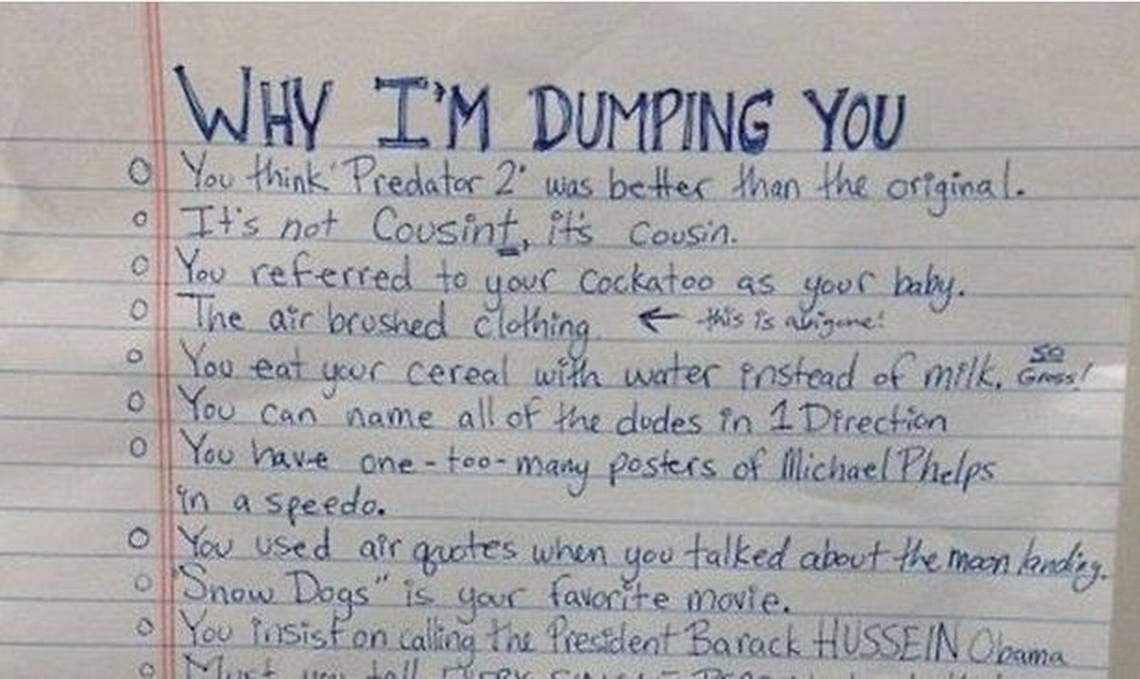 WHY I'M DUMPING YOU
You think 'Predator 2' was better than the original.
It's not Cousint, it's cousin.
You referred to your cockatoo as your baby.
The air brushed clothing ← this is a bigone!
You eat your cereal with water instead of milk. SO Gross!
You can name all of the dudes in 1 Direction
You have one-too-many posters of Michael Phelps
in a speedo.
You used air quotes when you talked about the moon landing.
"Snow Dogs" is your favorite movie.
You insist on calling the President Barack HUSSEIN Obama
Must you tell EVERY SINGLE